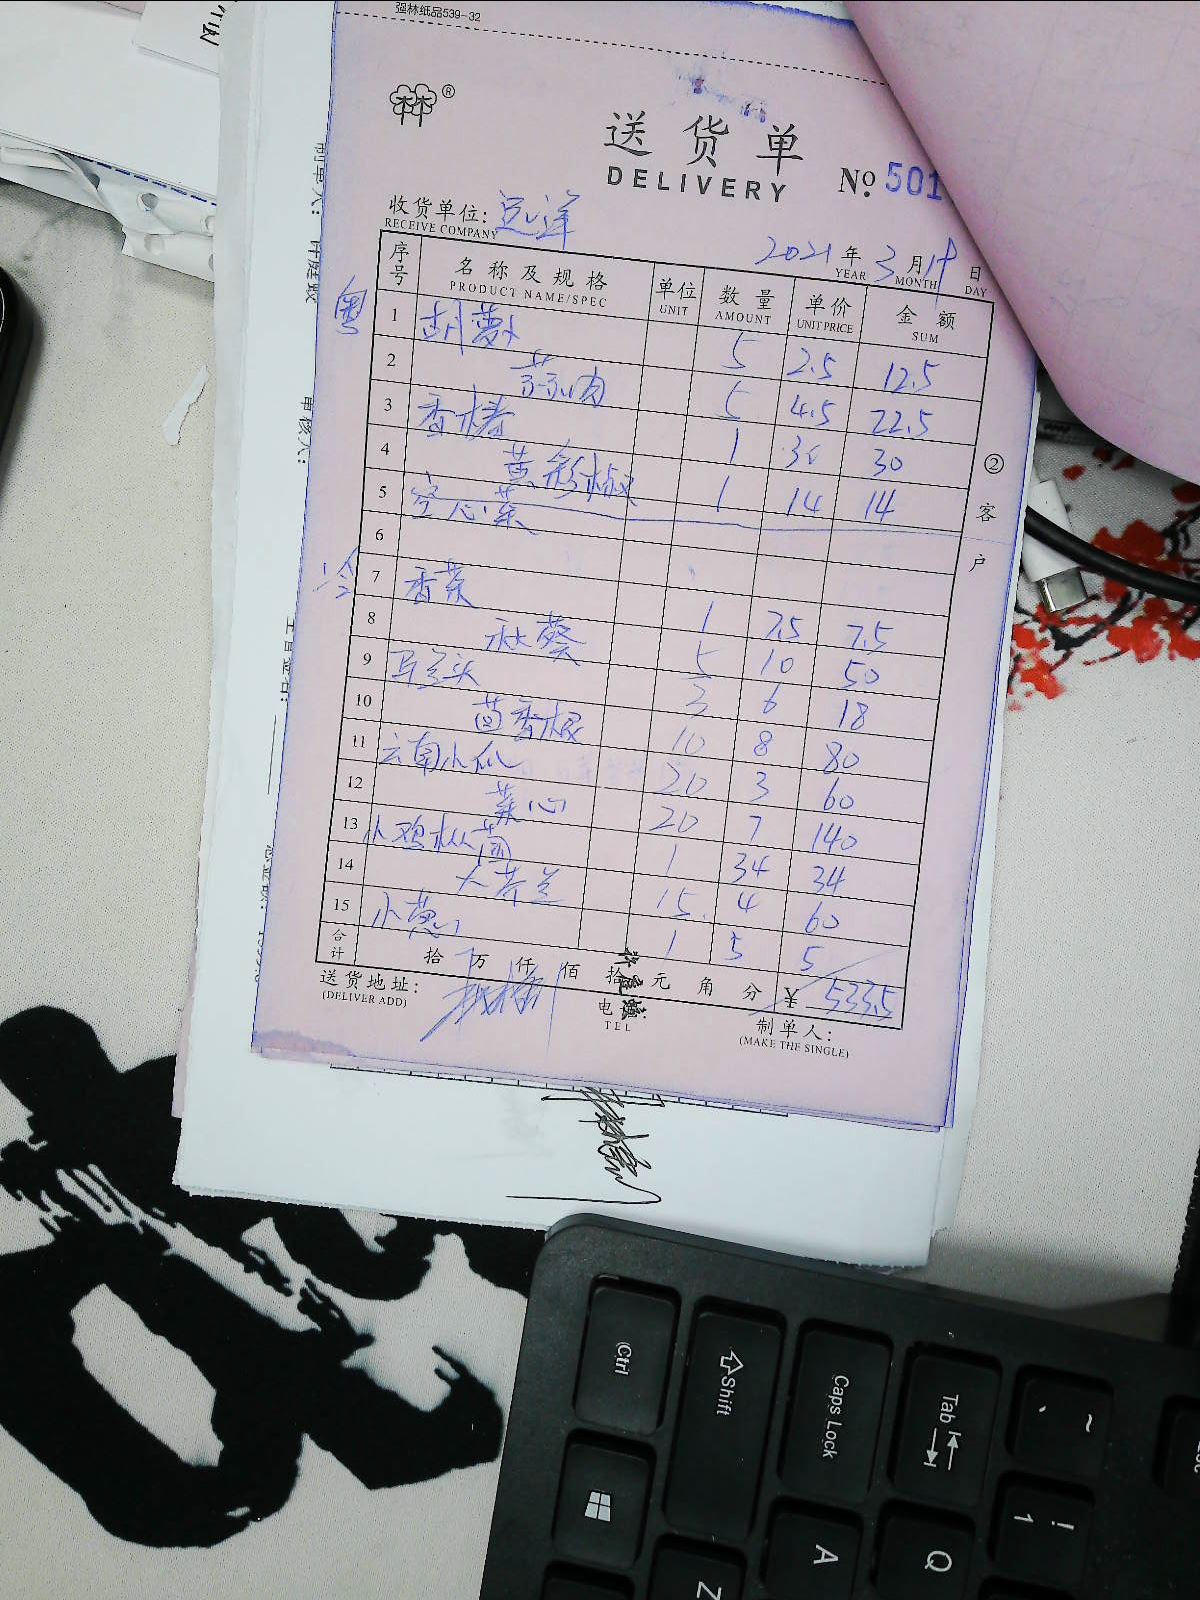 强林纸品539-32
林 ®
送货单
DELIVERY
№ 501
收货单位: 远洋
RECEIVE COMPANY
2021 年 3 月 19 日
YEAR MONTH DAY
序号 名称及规格 单位 数量 单价 金额
PRODUCT NAME/SPEC UNIT AMOUNT UNIT PRICE SUM
粤
1 胡萝卜 5 2.5 12.5
2 5 4.5 22.5
3 香椿 1 30 30
4 黄彩椒 1 14 14
5 空心菜
6
冷
7 香菜 1 7.5 7.5
8 秋葵 5 10 50
9 3 6 18
10 茴香根 10 8 80
11 云南小瓜 20 3 60
12 菜心 20 7 140
13 小鸡枞菌 1 34 34
14 大芥兰 15 4 60
15 小葱 1 5 5
合计 拾 万 仟 佰 拾 元 角 分 ¥ 533.5
送货地址:
(DELIVER ADD)
电话:
TEL
制单人:
(MAKE THE SINGLE)
② 客户
审核人:
Ctrl
Shift
Caps Lock
Tab
~
!
1
A
Q
Z